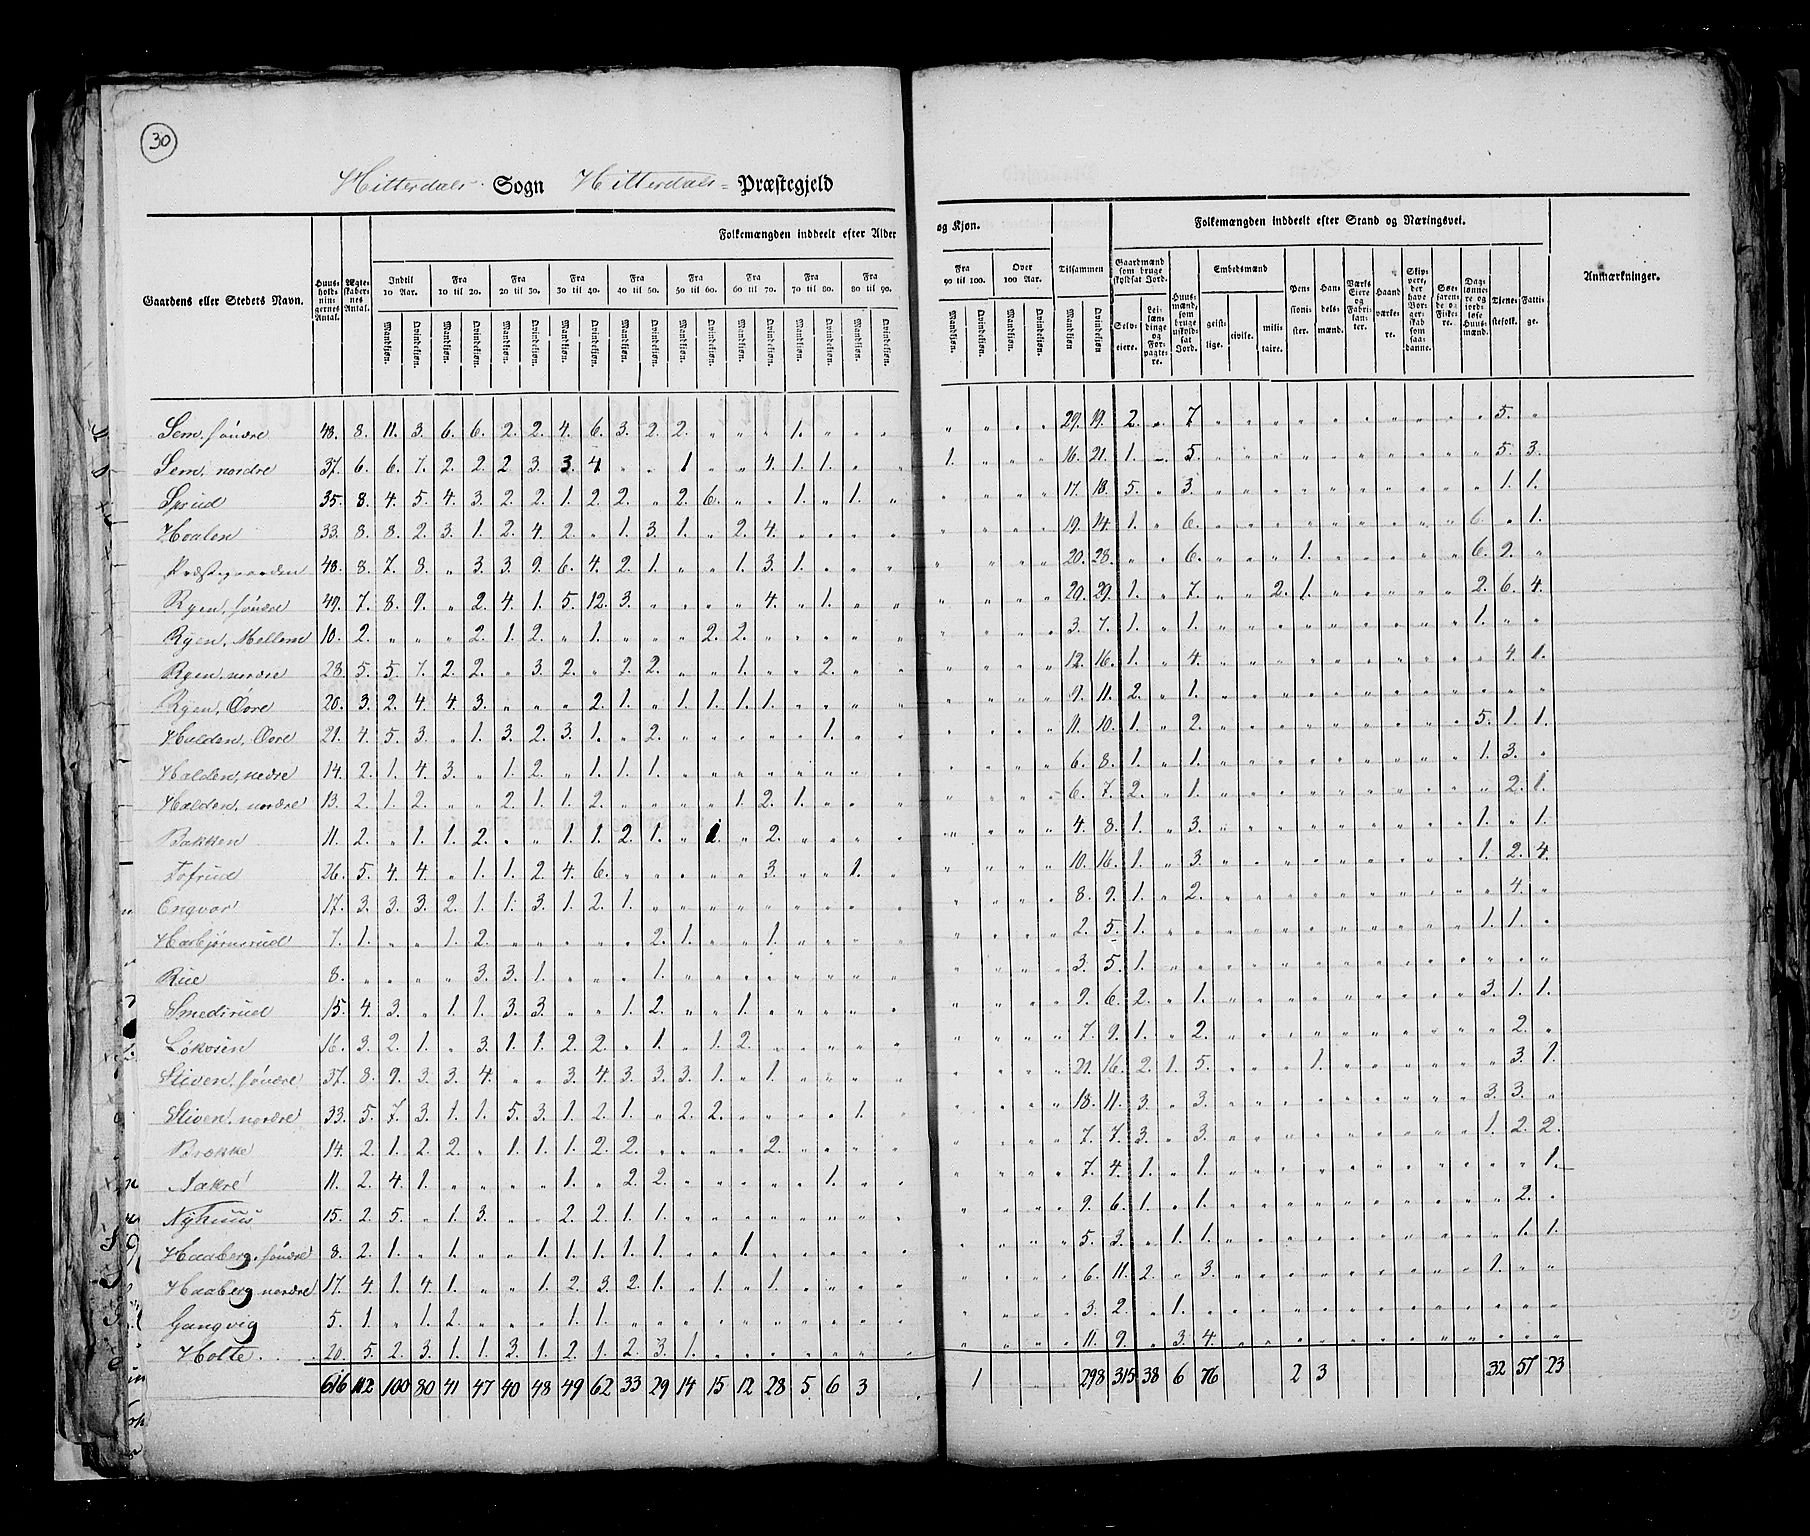 30
Hitterdals Sogn Hitterdals= Præstegjeld
Folkemængden inddeelt efter Alder og Kjøn.
Folkemængden inddeelt efter Stand og Næringsvei.
Gaardens eller Stedets Navn.
Huusholdningernes Antal. Ægteskabernes Antal.
Indtil 10 Aar. Fra 10 til 20. Fra 20 til 30. Fra 30 til 40. Fra 40 til 50. Fra 50 til 60. Fra 60 til 70. Fra 70 til 80. Fra 80 til 90. Fra 90 til 100. Over 100 Aar. Tilsammen
Mandkjøn. Qvindekjøn.
Gaardmænd som bruge skyldsat Jord. Selveiere. Leilændinge og Forpagtere. Huusmænd, som bruge uskyldsat Jord. Embedsmænd geistlige. civile. militaire. Pensionister. Handelsmænd. Værks Eiere og Fabrikanter. Haandværkere. Skippere, der have Borgerskab som saadanne. Søefarende og Fiskere. Daglønnere og jordløse Huusmænd. Tjenestefolk. Fattige.
Anmærkninger.
Sem, søndre 48. 8. 11. 3. 6. 6. 2. 2. 4. 6. 3. 2. 2. " " " 1. " " " " " " " 29. 19. 2. " 7 " " " " " " " " " " 5. "
Sem, nordre 37. 6. 6. 7. 2. 2. 2. 3. 3. 4. " " 1 " " 4. 1. 1. " " 1. " " " 16. 21. 1. " 5. " " " " " " " " " " 5. 3.
Sprud 35. 8. 4. 5. 4. 3. 2. 2. 1. 2. 2. " 2. 6. " " 1. " 1. " " " " " 17. 18. 5. " 3. " " " " " " " " " " 1. 1.
Hvalen 33. 8. 8. 2. 3. 1. 2. 4. 2. " 1. 3. 1. " 2. 4. " " " " " " " " 19. 14. 1. " 6. " " " " " " " " " 6. " 1.
Præstegaarden 48. 8. 7. 8. " 3. 3. 9. 6. 4. 2. 1. " " 1. 3. 1. " " " " " " " 20. 28. " " 6. " " " 1. " " " " " 6. 9. "
Ryen, søndre 49. 7. 8. 9. " 2. 4. 1. 5. 12. 3. " " " " 4. " 1. " " " " " " 20. 29. 1. " 7. " " 2. 1. " " " " " 2. 6. 4.
Ryen, Mellem 10. 2. " " " 2. 1. 2. " 1. " " " 2. 2. " " " " " " " " " 3. 7. 1. " 1. " " " " " " " " " 1. " "
Ryen, nordre 28. 5. 5. 7. 2. 2. " 3. 2. " 2. 2. " " 1. " " 2. " " " " " " 12. 16. 1. " 4. " " " " " " " " " " 4. 1.
Ryen, Øvre 20. 3. 2. 4. 4. 3. " " " 2. 1. " 1. 1. 1. 1. " " " " " " " " 9. 11. 2. " 1. " " " " " " " " " " " "
Halden, Øvre 21. 4. 5. 3. " 1. 3. 2. 3. 1. " 2. " " " " " 1. " " " " " " 11. 10. 1. " 2. " " " " " " " " " 5. 1. 1.
Halden, nedre 14. 2. 1. 4. 3. " 1. 2. " 1. 1. 1. " " " " " " " " " " " " 6. 8. 1. " 1. " " " " " " " " " 1. 3. "
Halden, nordre 13. 2. 1. 2. " " 2. 1. 1. 2. " " " " 1. 2. 1. " " " " " " " 6. 7. 2. " 1. " " " " " " " " " " 2. 1.
Bakken 11. 2. " 1. 1. 2. " " 1. 1. 2. 1. " 1. " 2. " " " " " " " " 4. 8. 1. " 3. " " " " " " " " " 1. " 1.
Tofrud 26. 5. 4. 4. " 1. 1. 2. 4. 6. " " " " " 3. " " 1. " " " " " 10. 16. 1. " 3. " " " " " " " " " 1. 2. 4.
Engvar 17. 3. 3. 3. 2. 1. 1. 3. 1. 2. 1. " " " " " " " " " " " " " 8. 9. 1. " 2. " " " " " " " " " " 4. "
Hasbjørnsrud 7. 1. " " 1. 2. " " " " " 2. 1. " " 1. " " " " " " " " 2. 5. 1. " " " " " " " " " " " 1. 1. "
Rue 8. " " " " 3. 3. 1. " " " 1. " " " " " " " " " " " " 3. 5. 1. " " " " " " " " " " " " " "
Smedsrud 15. 4. 3. " 1. 1. 3. 3. " " 1. 2. " " 1. " " " " " " " " " 9. 6. 2. " 1. " " " " " " " " " 3. 1. 1.
Løkosen 16. 3. 2. 1. " 3. 1. 1. 2. 2. " 1. " 1. 2. " " " " " " " " " 7. 9. 1. " 2. " " " " " " " " " " 2. "
Stiven, søndre 37. 8. 9. 3. 3. 4. " " 3. 4. 3. 3. 3. 1. " 1. " " " " " " " " 21. 16. 2. 1. 5. " " " 1. " " " " " " 3. 1.
Stiven, nordre 33. 5. 7. 3. 1. 1. 5. 3. 1. 2. 1. " 2. 2. " " " " 1. " " " " " 18. 11. 3. " 3. " " " " " " " " " 3. 3. "
Brække 14. 2. 1. 2. 2. " 1. 1. 1. 2. 2. " " " " 2. " " " " " " " " 7. 7. 3. " 3. " " " " " " " " " 1. 2. 2.
Aakre 11. 2. 4. 1. " " " " 1. " 2. 2. " " " " " 1. " " " " " " 7. 4. 1. " 1. " " " " " " " " " " " 1.
Nyhuus 15. 2. 5. " 1. 3. " " 2. 2. 1. 1. " " " " " " " " " " " " 9. 6. 1. " 1. " " " " " " " " " " 2. "
Haaberg, søndre 8. 2. 1. " 1. " " 1. 1. 1. 1. 1. " " 1. " " " " " " " " " 5. 3. " 1. 1. " " " " " " " " " " 1. 1.
Haaberg nordre 17. 4. 1. 4. 1. " " 1. 2. 3. 2. 1. " 1. " 1. " " " " " " " " 6. 11. 2. " 3. " " " " " " " " " 1. " "
Gangvig 5. 1. " 1. 2. " " " 1. 1. " " " " " " " " " " " " " " 3. 2. " 1. " " " " " " " " " " " " "
Holte 20. 5. 2. 3. 1. 1. 3. 1. 2. 1. 2. 3. 1. " " " " " " " " " " " 11. 9. " 3. 4. " " " " " " " " " " " "
616 112 100 80 41 47 40 48 49 62 33 29 14 15 12 28 5 6 3 1 298 315 38 6 76 2 3 32 57 23